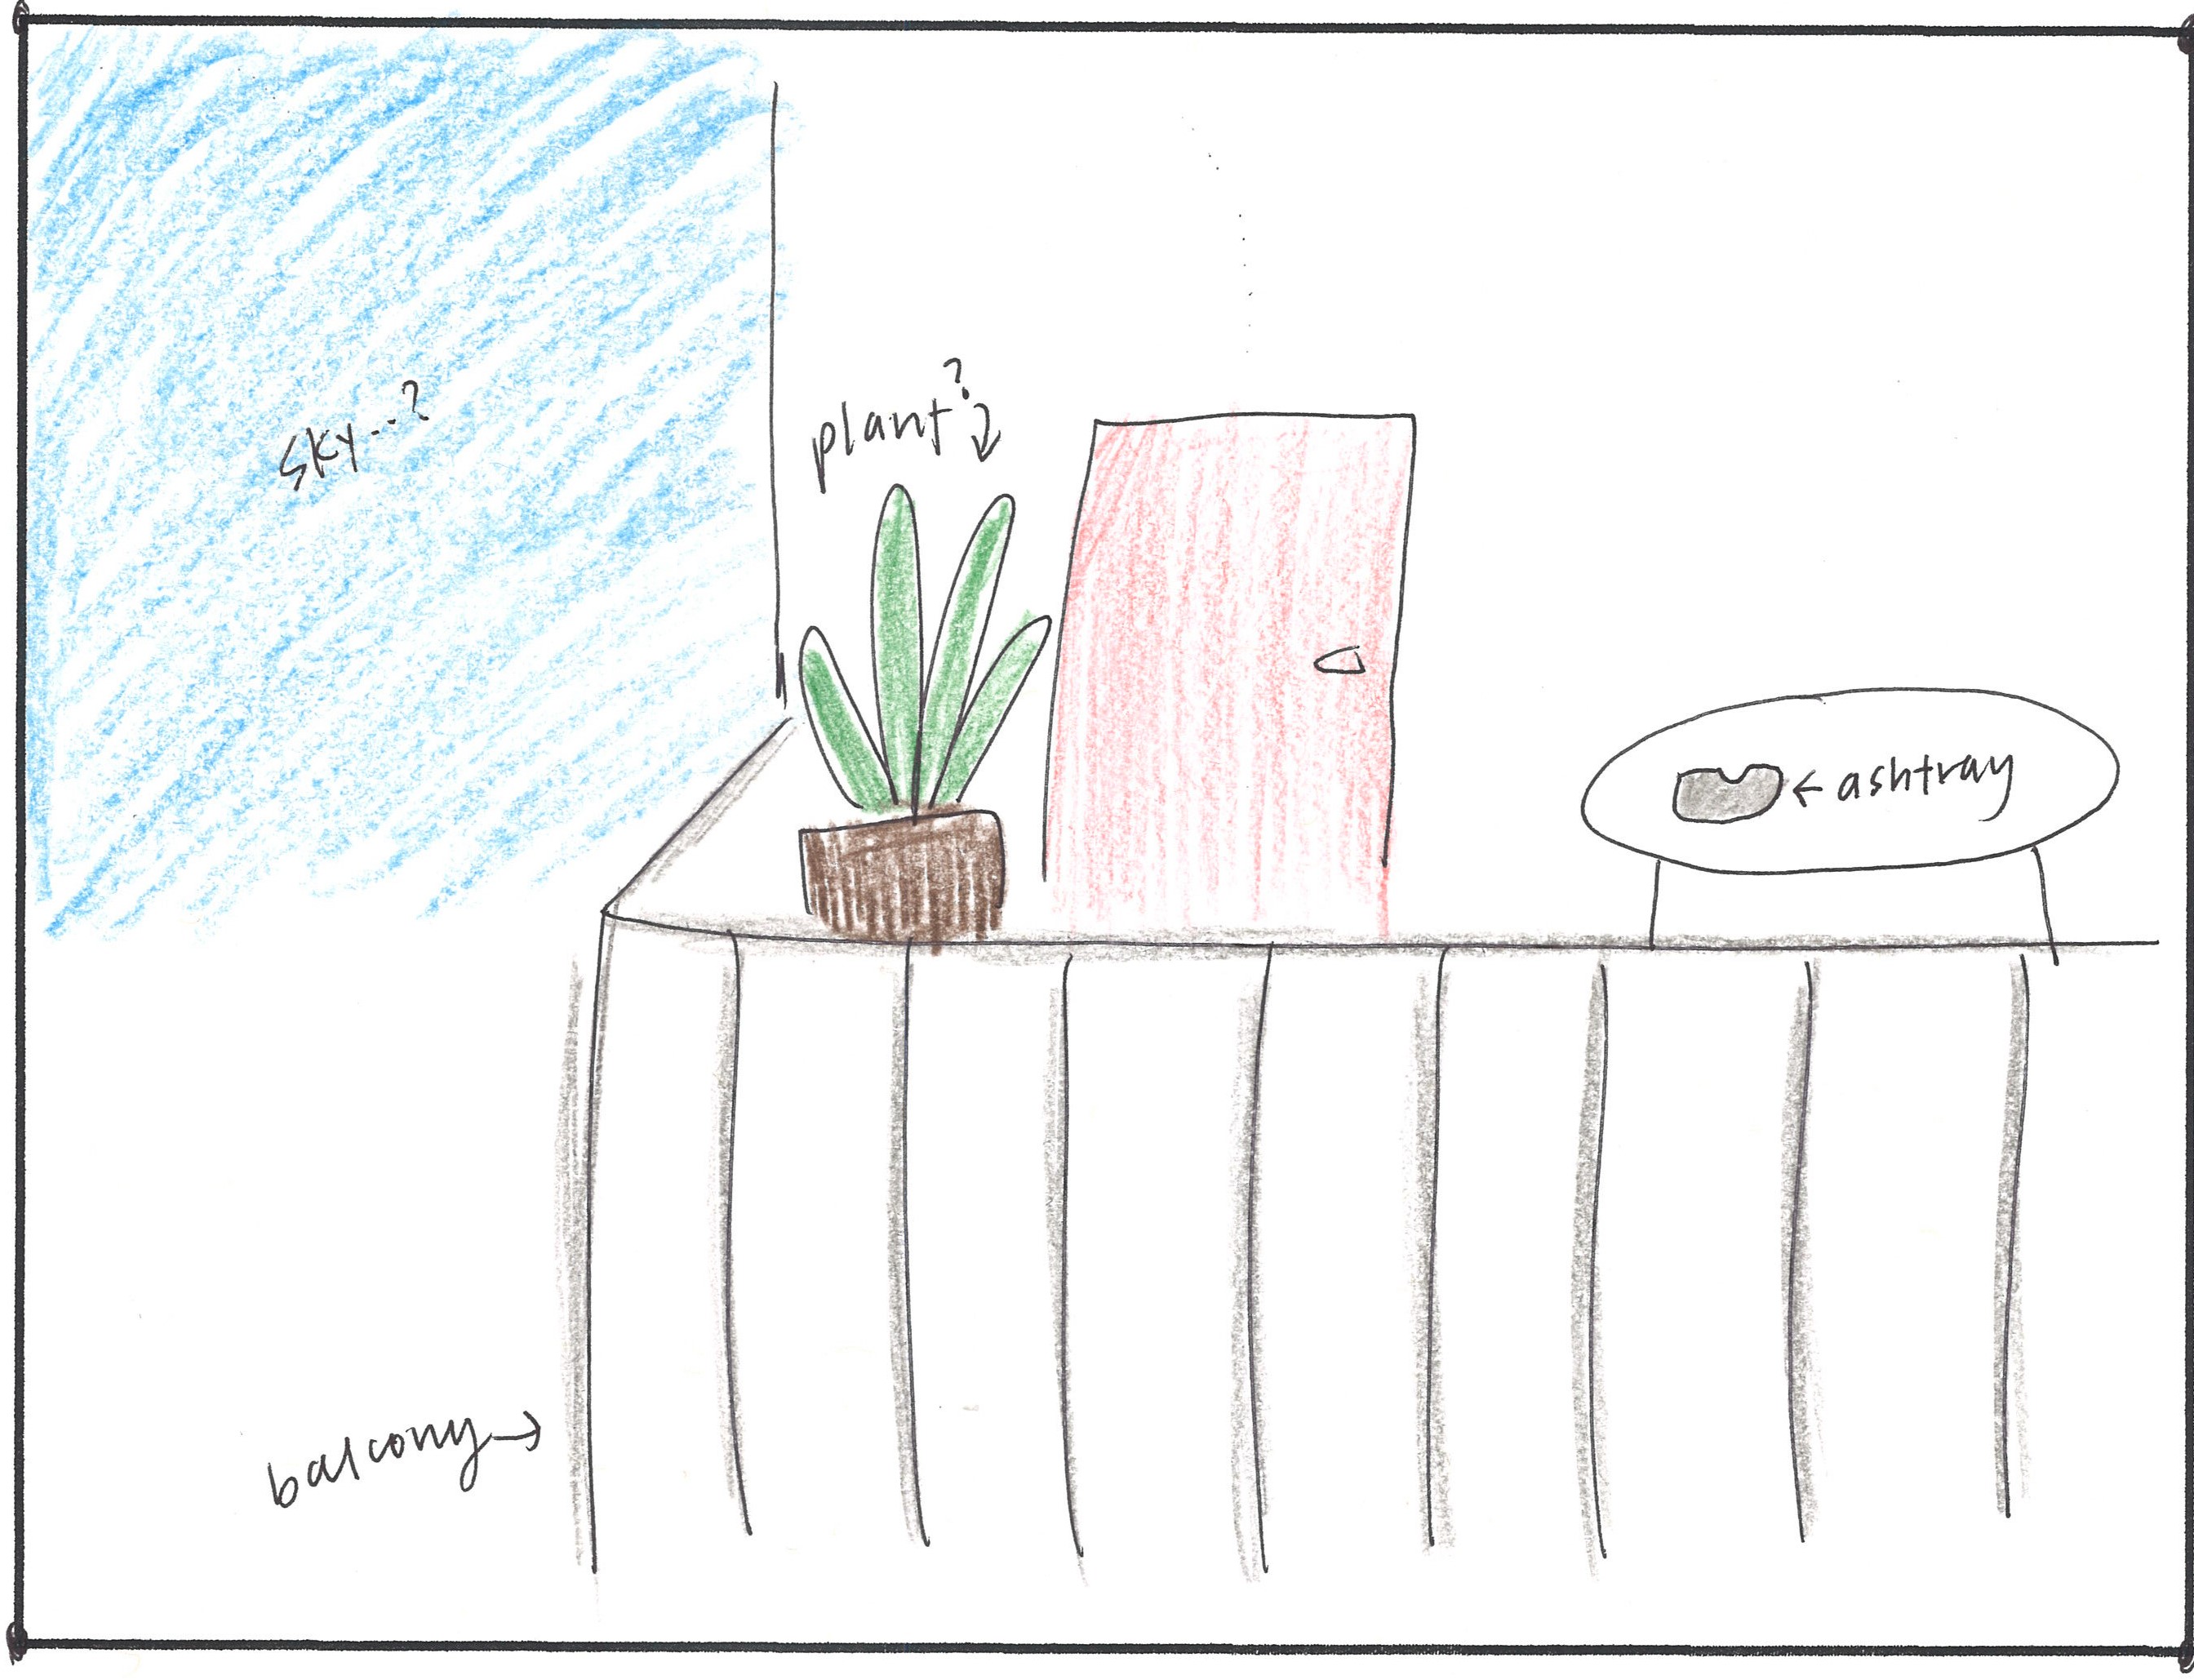 sky...?
plant?
ashtray
balcony